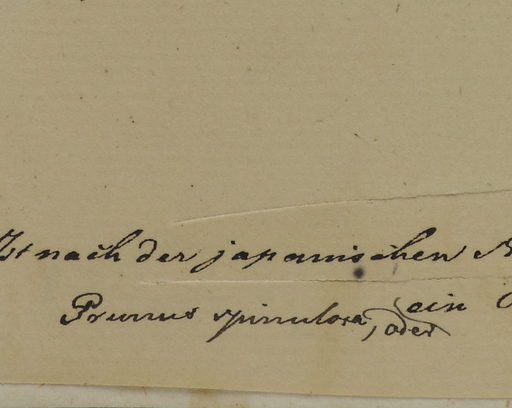 Ist nach der japanischen
Prunus spinulosa, oder (ein